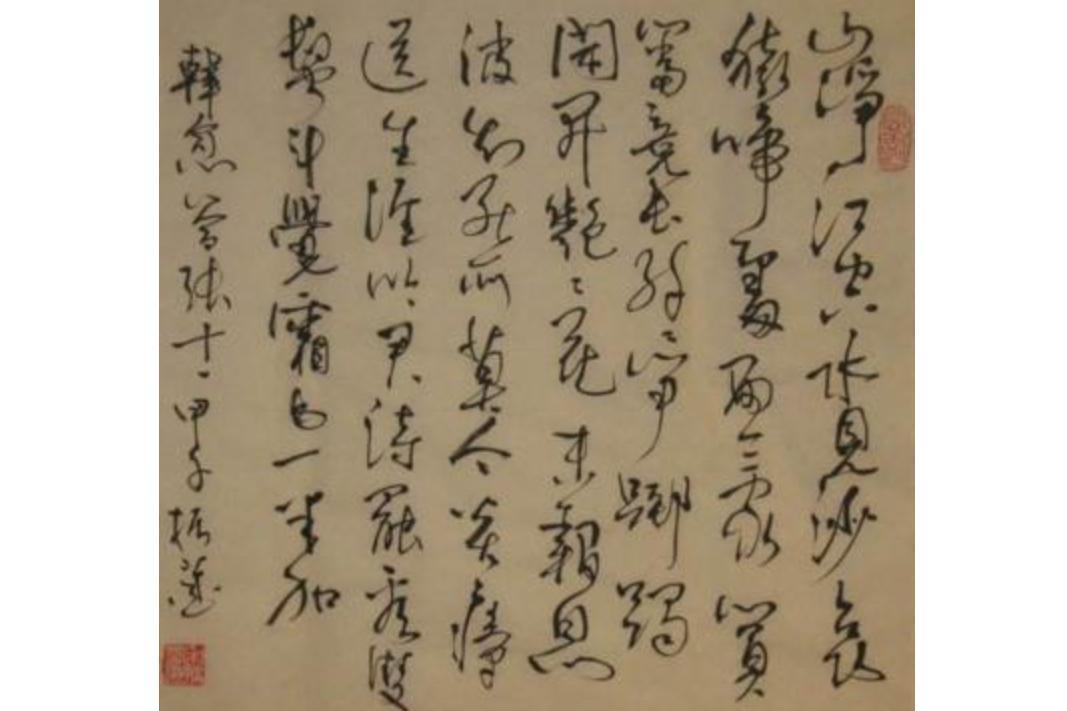 山淨江空水見沙哀
猿啼處兩三家篔
簹競長纖々筍躑躅
閒開艷々花未報恩
波知死所莫令炎瘴
送生涯吟君詩罷看雙
鬢斗覺霜毛一半加
韓愈答張十一甲午振